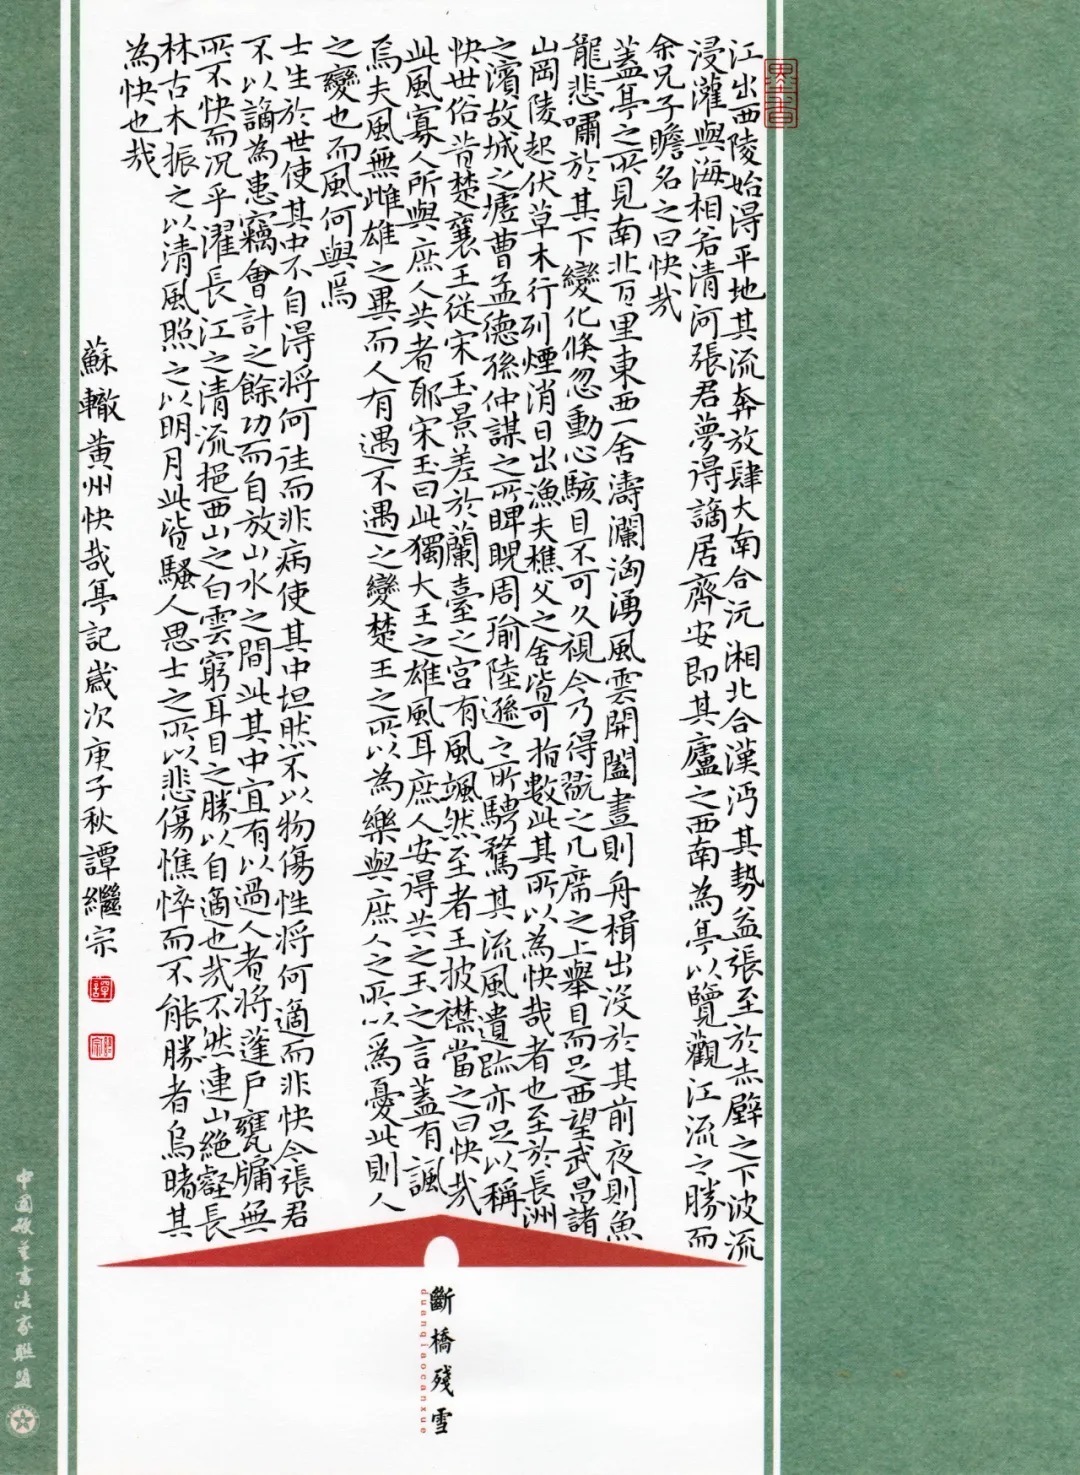 江出西陵始得平地其流奔放肆大南合沅湘北合漢沔其勢益張至於赤壁之下波流
浸灌與海相若清河張君夢得謫居齊安即其廬之西南為亭以覽觀江流之勝而
余兄子瞻名之曰快哉
蓋亭之所見南北百里東西一舍濤瀾洶湧風雲開闔晝則舟楫出沒於其前夜則魚
龍悲嘯於其下變化倏忽動心駭目不可久視今乃得翫之几席之上舉目而足西望武昌諸
山岡陵起伏草木行列煙消日出漁夫樵父之舍皆可指數此其所以為快哉者也至於長洲
之濱故城之墟曹孟德孫仲謀之所睥睨周瑜陸遜之所騁騖其流風遺跡亦足以稱
快世俗昔楚襄王從宋玉景差於蘭臺之宮有風颯然至者王披襟當之曰快哉
此風寡人所與庶人共者耶宋玉曰此獨大王之雄風耳庶人安得共之玉之言蓋有諷
焉夫風無雌雄之異而人有遇不遇之變楚王之所以為樂與庶人之所以為憂此則人
之變也而風何與焉
士生於世使其中不自得將何往而非病使其中坦然不以物傷性將何適而非快今張君
不以謫為患竊會計之餘功而自放山水之間此其中宜有以過人者將蓬戶甕牖無
所不快而況乎濯長江之清流挹西山之白雲窮耳目之勝以自適也哉不然連山絕壑長
林古木振之以清風照之以明月此皆騷人思士之所以悲傷憔悴而不能勝者烏睹其
為快也哉
蘇轍黃州快哉亭記歲次庚子秋譚繼宗
斷橋殘雪
duanqiaocanxue
中国硬筆書法家聯盟